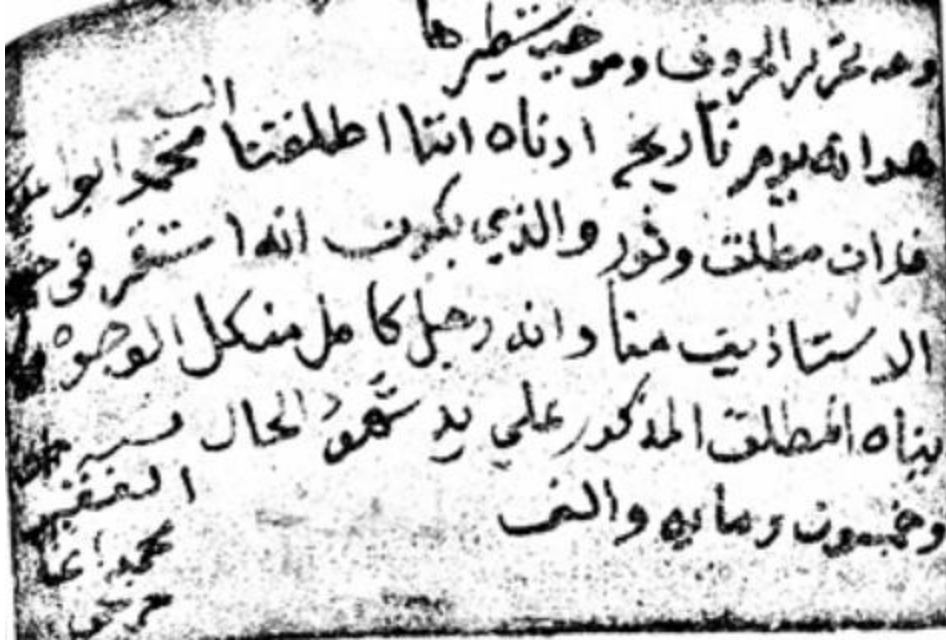 وجه تحرير الحروف وموجب تسطيرها
هو انه يوم تاريخ ادناه اننا اطلقنا محمد ابو
فلان مطلق وثور والذي يكون انه استقر في
الاستاذيت منا وانه رجل كامل من كل الوجوه
بيناه المطلق المذكور علي يد شهود الحال
وخمسون ومايه والف
الفقير
محمد اغا